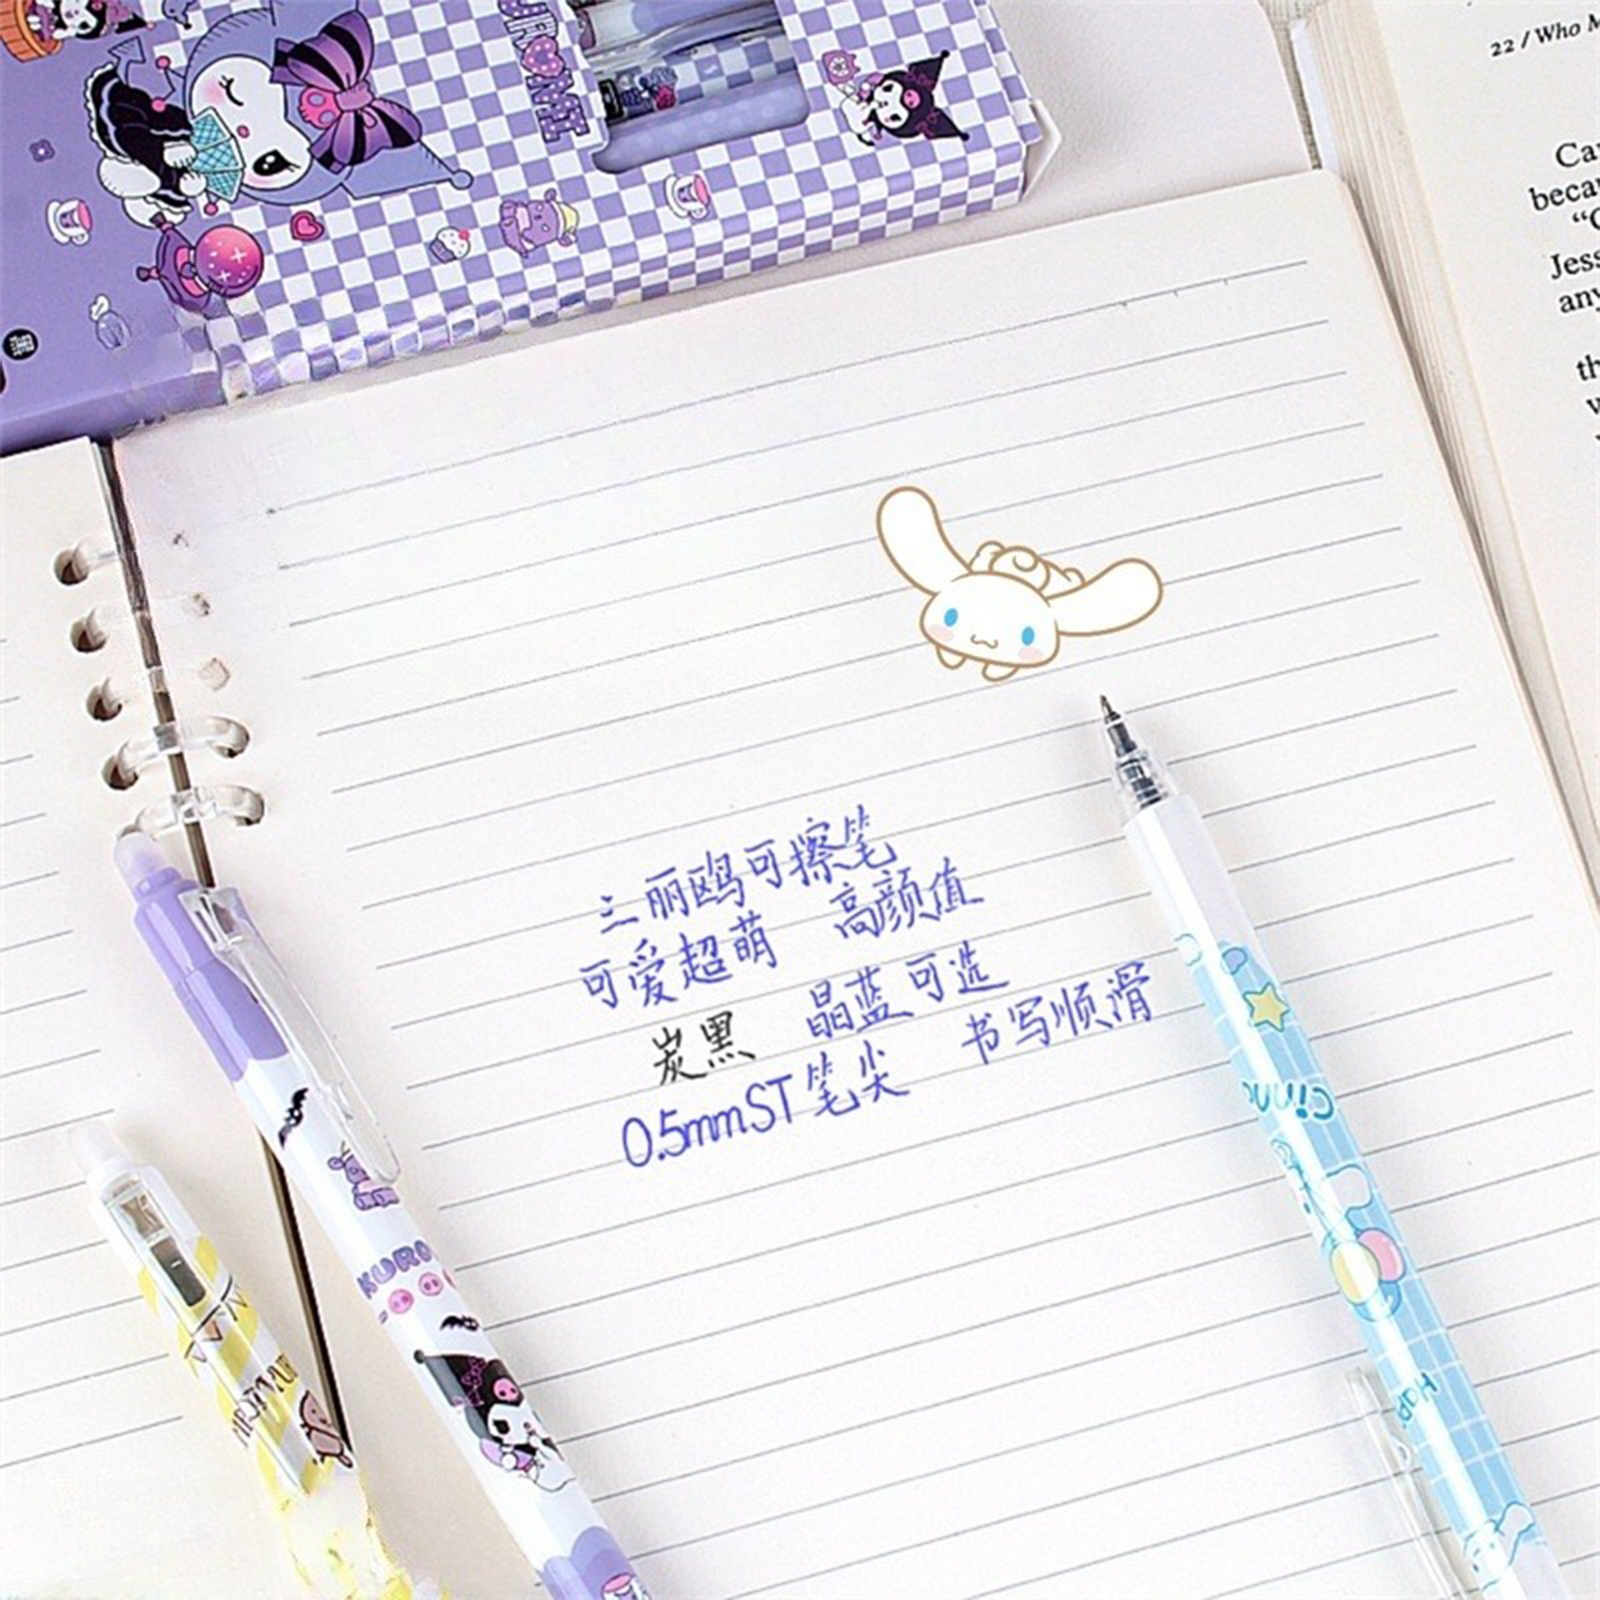 22 / Who M
Ca
beca
“C
Jess
any
th
w
三丽鸥可擦笔
可爱超萌 高颜值
炭黑 晶蓝可选
0.5mmST笔尖 书写顺滑
KURO
cinna